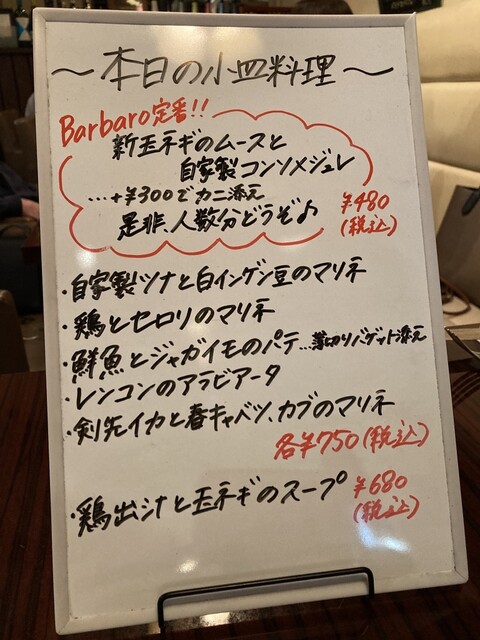 ～本日の小皿料理～
Barbaro定番!!
新玉ネギのムースと
自家製コンソメジュレ
…+¥300でカニ添え
是非、人数分どうぞ♪
¥480
(税込)
・自家製ツナと白インゲン豆のマリネ
・鶏とセロリのマリネ
・鮮魚とジャガイモのパテ…薄切りバゲット添え
・レンコンのアラビアータ
・剣先イカと春キャベツ、カブのマリネ
各¥750(税込)
・鶏出汁と玉ネギのスープ
¥680
(税込)